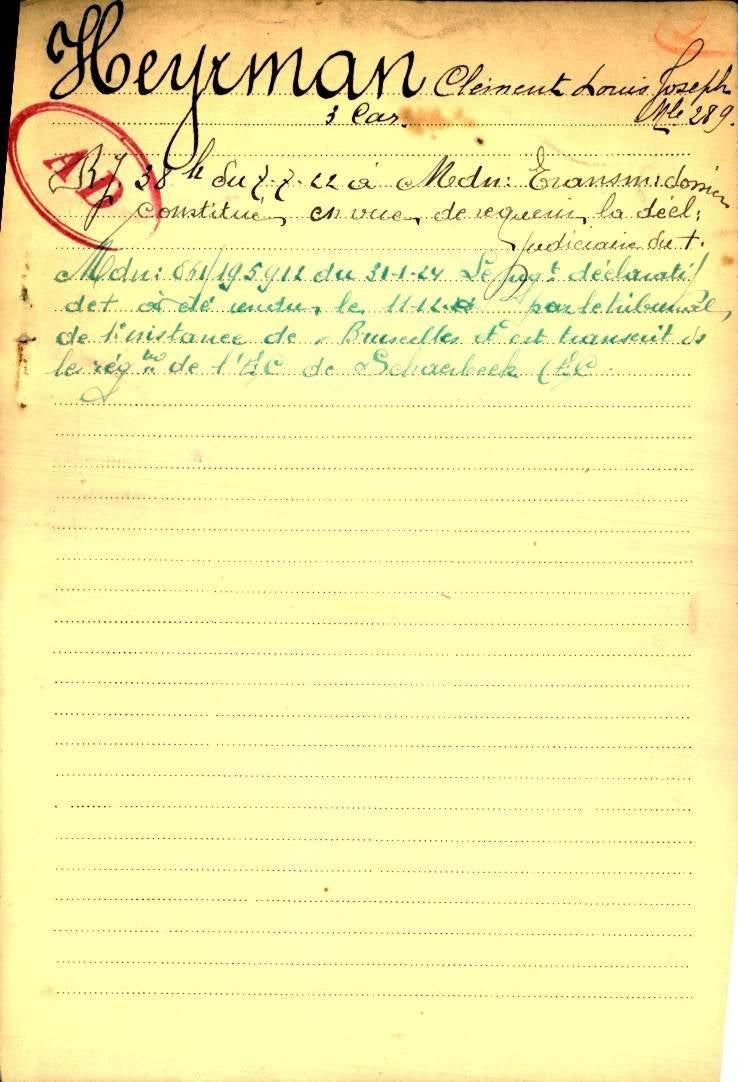 Heyrman Clement Louis Joseph
3 Car. Mle 289.
AB
38 h du 7-7-22 à Mdn: Transm: dossier
constitué, en vue, de requérir, la décl:
judiciaire du +.
Mdn: 861/195912 du 31-1-24 Le jugt déclaratif
de + a été rendu, le 11-12- par le tribunal,
de 1e instance de Bruxelles et est transcrit ds
le rég de l'EC de Schaerbeek (EC